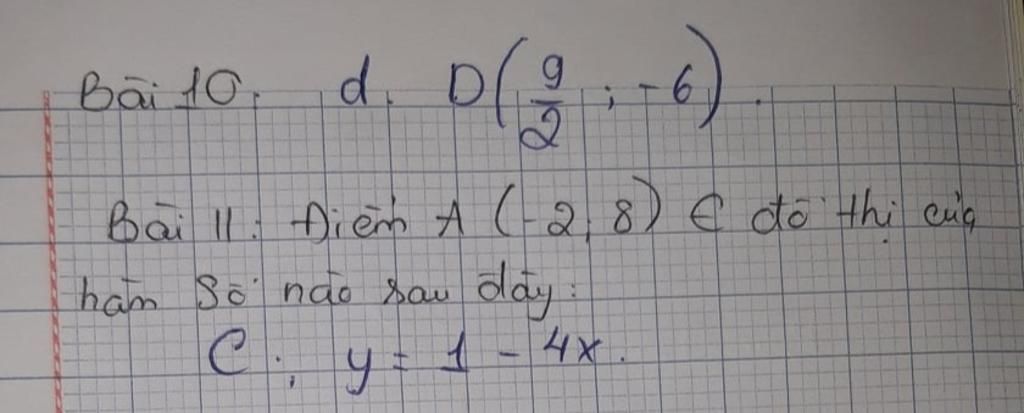 Bài 10. d. D(9/2 ; -6).
Bài 11: Điểm A (-2, 8) ∈ đồ thị của
hàm số nào sau đây:
C; y = 1 - 4x.